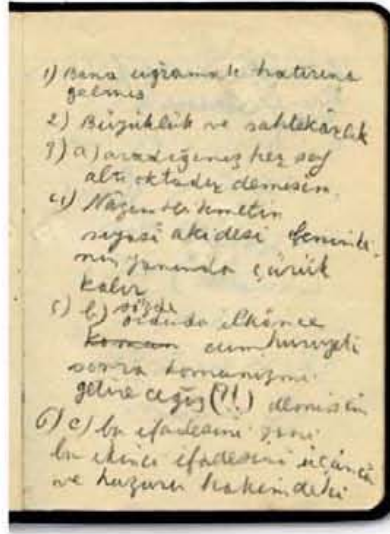 1) Bana uğramak hatırına
gelmiş
2) Büyüklük ve sahtekârlık
3) a) aradığınız her şey
altı oktadır demesin.
4) Nazım Hikmetin
siyasî akidesi benimki-
nin yanında çürük
kalır
5) b) sözde orduda ilkönce
cumhuriyeti
sonra komanizmi
getireceğiz (?!) demişim
6) c) bu ifadesini yani
bu ikinci ifadesini üçüncü
ve huzuru hakimdeki